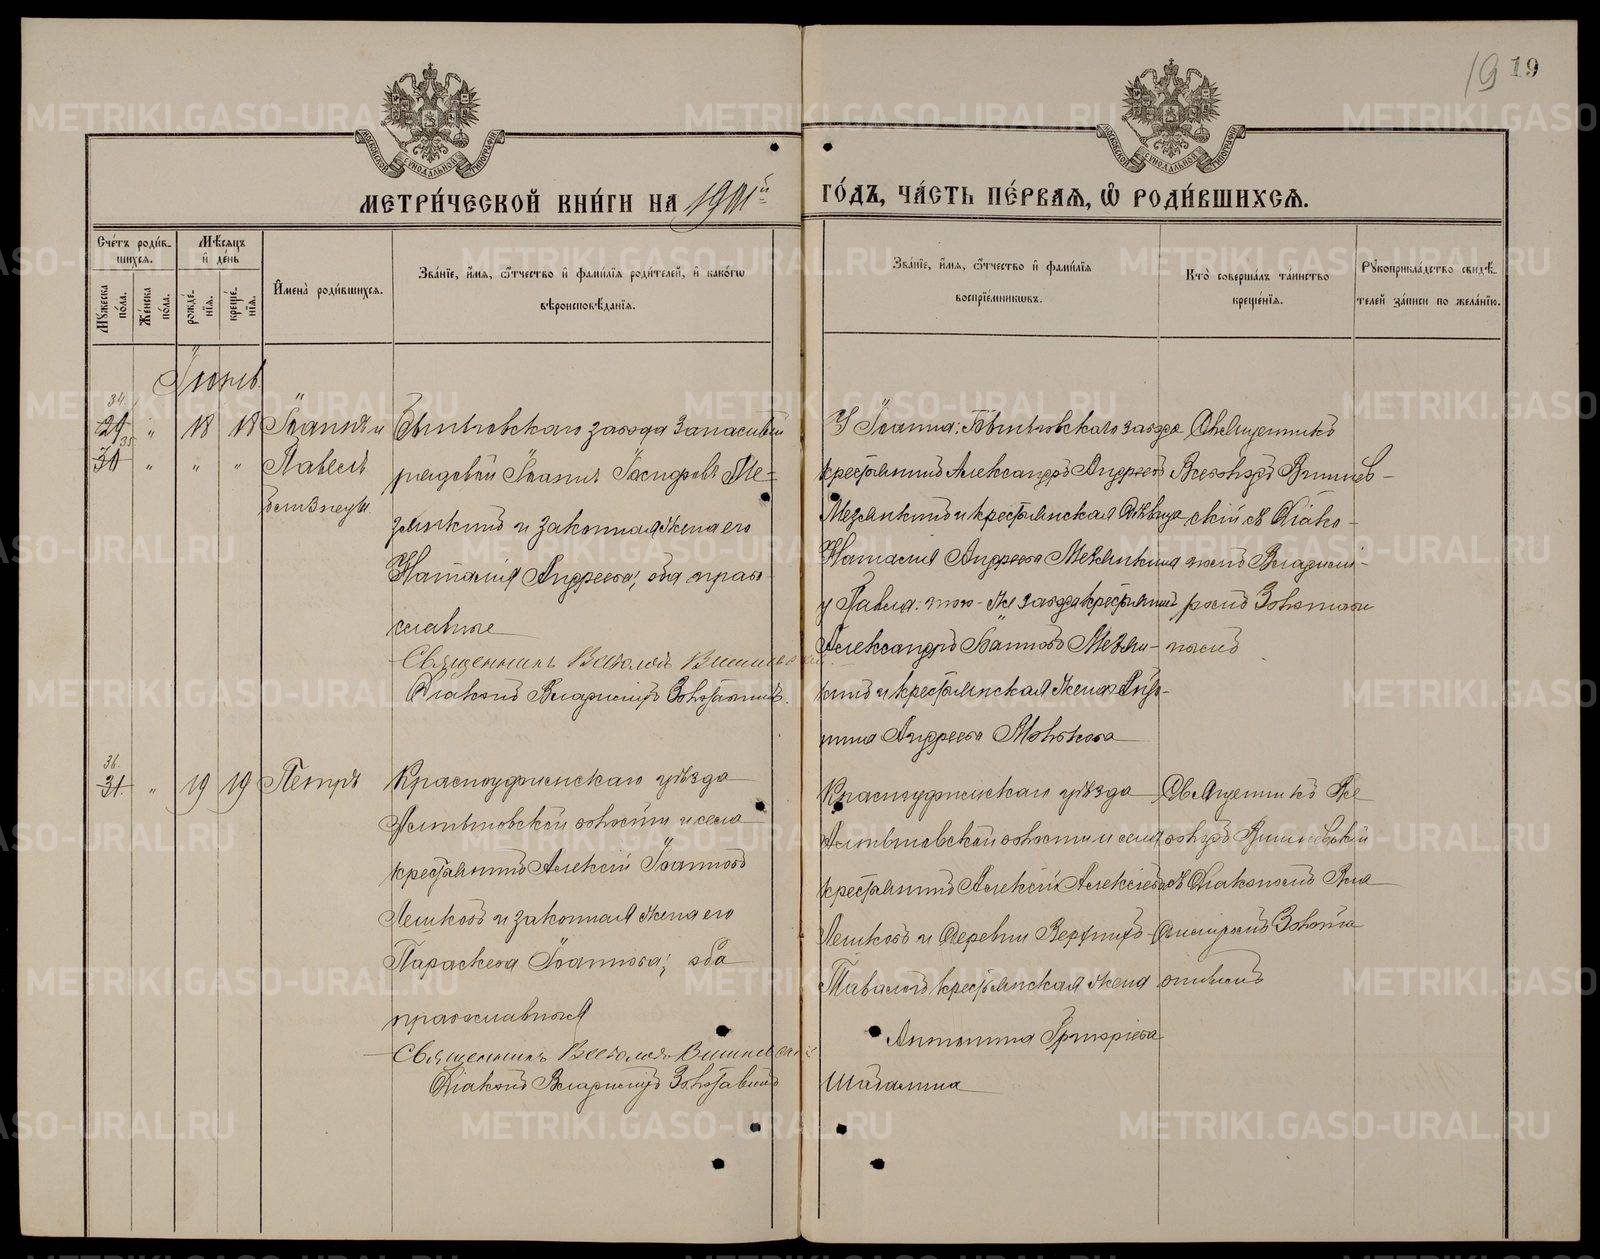 19 19
МОСКОВСКОЙ СѴНОДАЛЬНОЙ ТИПОГРАФІИ
МОСКОВСКОЙ СѴНОДАЛЬНОЙ ТИПОГРАФІИ
МЕТРИ́ЧЕСКОЙ КНИ́ГИ НА 1901й ГО́ДЪ, ЧА́СТЬ ПЕ́РВАѦ, Ѡ҆ РОДИ́ВШИХСѦ.
Сче́тъ роди́вшихсѧ.
Мꙋ́жеска по́ла.
Же́нска по́ла.
Мѣ́сѧцъ и҆ де́нь
рожде́нїѧ.
креще́нїѧ.
И҆мена̀ роди́вшихсѧ.
Зва́нїе, и҆́мѧ, ѻ҆́тчество и҆ фами́лїѧ роди́телей, и҆ како́гѡ
вѣроисповѣ́данїѧ.
Зва́нїе, и҆́мѧ, ѻ҆́тчество и҆ фами́лїѧ
воспрїе́мникѡвъ.
Кто̀ соверша́лъ та́инство
креще́нїѧ.
Рꙋкоприкла́дство свидѣ́-
телей за́писи по жела́нїю.
Іюнь
34.
29 " 18 18 Іоаннъ и
35.
30 " " " Павелъ
близнецы
заводa запасный
рядовой Іоаннъ Ме-
зянкинъ и законная жена его
Наталія Андреева, оба право-
славные
Священникъ Всеволодъ Вишневскій
Діаконъ Владиміръ
У Іоанна: завода
крестьянинъ Александръ Андреевъ
Мезянкинъ и крестьянская дѣвица
Наталія Андреева Мезянкина
у Павла: того-же завода крестьянинъ
Александръ Іоанновъ Мезян-
кинъ и крестьянская жена
Андреева
Священникъ
Всеволодъ Вишнев-
скій съ Діако-
номъ Владимі-
ромъ
36.
31. " 19 19 Петръ
Красноуфимскаго уѣзда
волости и села
крестьянинъ Алексій Іоанновъ
Лешковъ и законная жена его
Параскева Іоаннова, оба
православныя
Священникъ Всеволодъ Вишневскій
Діаконъ Владиміръ
Красноуфимскаго уѣзда
волости и села
крестьянинъ Алексій Алексіевъ
Лешковъ и деревни Верхнихъ-
Таваловъ крестьянская жена
Антонина Григоріева
Шабалина
Священникъ Все-
володъ Вишневскій
съ Діакономъ Вла-
диміромъ
METRIKI.GASO-URAL.RU